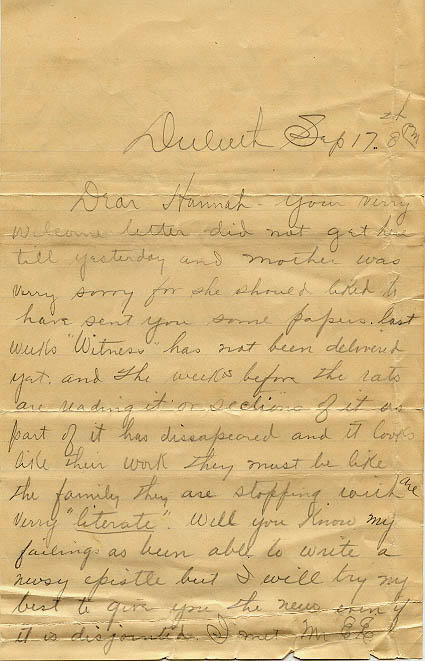 Duluth Sep 17. at 8 PM
Dear Hannah - Your verry
welcome letter did not get here
till yesterday and mother was
verry sorry for she should liked to
have sent you some papers. last
weeks "Witness" has not been delivered
yet. and the weeks before the rats
are reading it or sections of it as
part of it has dissapeared and it looks
like their work they must be like
the family they are stopping with are
verry "literate". Will you know my
failings as been able to write a
newsy epistle but I will try my
best to give you the news even if
it is disjointed. I met Mr EE